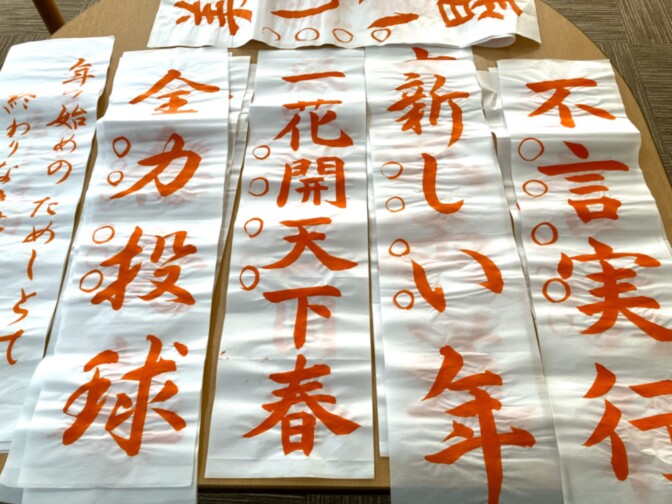 不言実行
新しい年
一花開天下春
全力投球
年の始めのためしとて
終わりなき